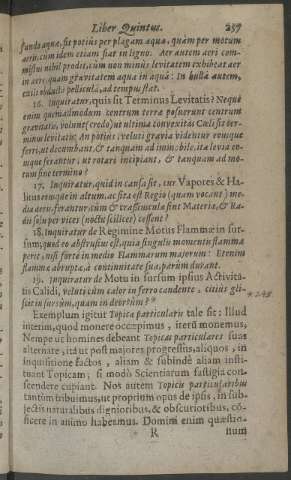 Liber Quintus. 259
fundo aquæ, sit potiùs per plagam aquæ, quàm per motum
aëris; cùm idem etiam fiat in ligno: Aer autem aeri com-
mistus nihil prodit, cùm non minùs levitatem exhibeat aer
in aëre, quàm gravitatem aqua in aquâ: In bullâ autem,
exili obductâ pelliculâ, ad tempus stat.
16. Inquiratur, quis sit Terminus Levitatis? Neque
enim quemadmodum centrum terræ posuerunt centrum
gravitatis, volunt (credo) ut ultima convexitas Cœli sit ter-
minus levitatis: An potiùs, veluti gravia videntur eousque
ferri, ut decumbant, & tanquam ad immobile; ita levia eo-
usque ferantur, ut rotari incipiant, & tanquam ad mo-
tum sine termino?
17. Inquiratur, quid in causa sit, cur Vapores & Ha-
litus eousque in altum, ac sita est Regio (quam vocant) me-
dia aëris, ferantur; cùm & crassiuscula sint Materiæ, & Ra-
dii solis per vices (noctu scilicet) cessent?
18. Inquiratur de Regimine Motus Flammæ in sur-
sum; quod eo abstrusius est, quia singulis momentis flamma
perit, nisi fortè in medio Flammarum majorum: Etenim
flammæ abruptæ, à continuitate sua, parùm durant.
19. Inquiratur de Motu in sursum ipsius Activita-
tis Calidi, veluti cùm calor in ferro candente, citiùs glis-
cit in sursum, quàm in deorsum? *
* 248.
Exemplum igitur Topicæ particularis tale sit: Illud
interim, quod monere occœpimus, iterũ monemus,
Nempe ut homines debeant Topicas particulares suas
alternare, ità ut post majores progressus, aliquos, in
Inquisitione factos, aliam & subindè aliam insti-
tuant Topicam; si modò Scientiarum fastigia con-
scendere cupiant. Nos autem Topicis particularibus
tantùm tribuimus, ut proprium opus de ipsis, in sub-
jectis naturalibus dignioribus, & obscurioribus, cõ-
ficere in animo habeamus. Domini enim quæstio-
R num